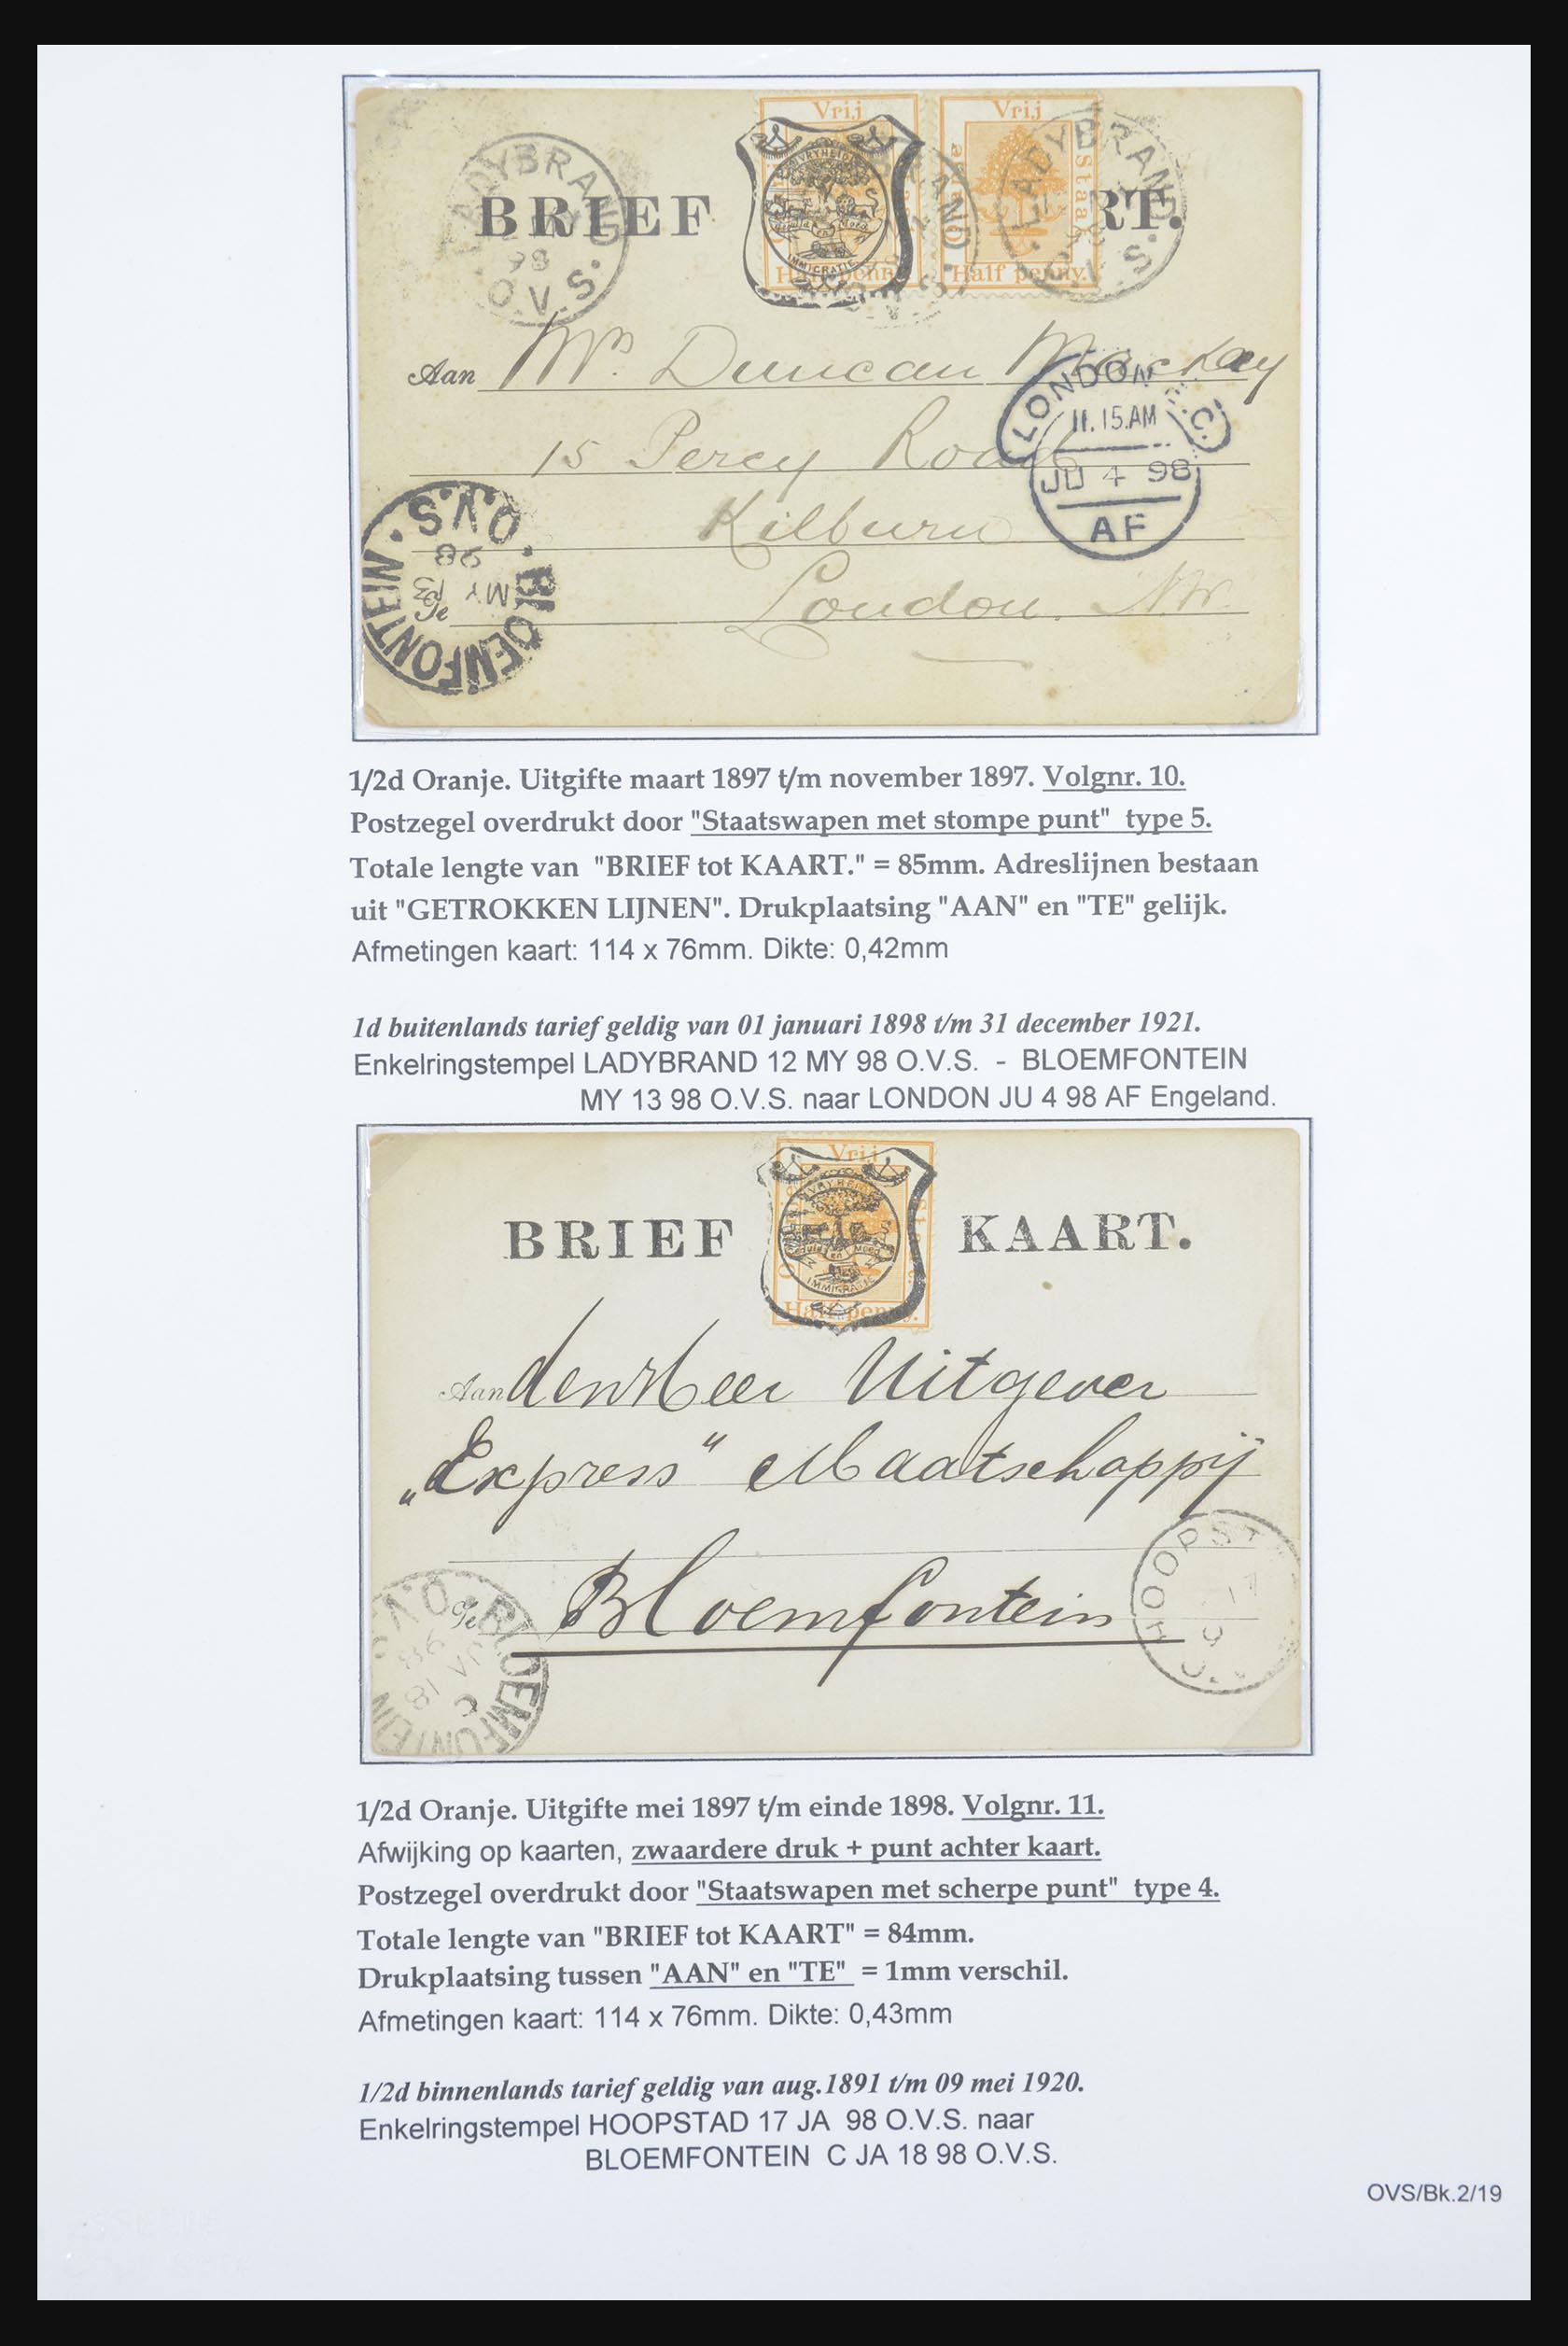 Vrij Vrij
LADYBRAND
BRIEF RT.
98
O.V.S.
VRYHEID
IMMIGRATIE
Staat
Half penny Half penny.
LADYBRAND
O.V.S.
Aan Mrs. Duncan Mackay
LONDON E.C.
11.15.AM
15 Percy Road
JU 4 98
AF
Kilburn
London. N.W.
Te
BLOEMFONTEIN
MY 13
98
O.V.S.
1/2d Oranje. Uitgifte maart 1897 t/m november 1897. Volgnr. 10.
Postzegel overdrukt door "Staatswapen met stompe punt" type 5.
Totale lengte van "BRIEF tot KAART." = 85mm. Adreslijnen bestaan
uit "GETROKKEN LIJNEN". Drukplaatsing "AAN" en "TE" gelijk.
Afmetingen kaart: 114 x 76mm. Dikte: 0,42mm
1d buitenlands tarief geldig van 01 januari 1898 t/m 31 december 1921.
Enkelringstempel LADYBRAND 12 MY 98 O.V.S. - BLOEMFONTEIN
MY 13 98 O.V.S. naar LONDON JU 4 98 AF Engeland.
Vrij
BRIEF KAART.
Geduld en Moed
IMMIGRATIE
Half penny.
Aan den Heer Uitgever
„Express“ Maatschappij
Te Bloemfontein
HOOPST
BLOEMFONTEIN
1/2d Oranje. Uitgifte mei 1897 t/m einde 1898. Volgnr. 11.
Afwijking op kaarten, zwaardere druk + punt achter kaart.
Postzegel overdrukt door "Staatswapen met scherpe punt" type 4.
Totale lengte van "BRIEF tot KAART" = 84mm.
Drukplaatsing tussen "AAN" en "TE" = 1mm verschil.
Afmetingen kaart: 114 x 76mm. Dikte: 0,43mm
1/2d binnenlands tarief geldig van aug.1891 t/m 09 mei 1920.
Enkelringstempel HOOPSTAD 17 JA 98 O.V.S. naar
BLOEMFONTEIN C JA 18 98 O.V.S.
OVS/Bk.2/19